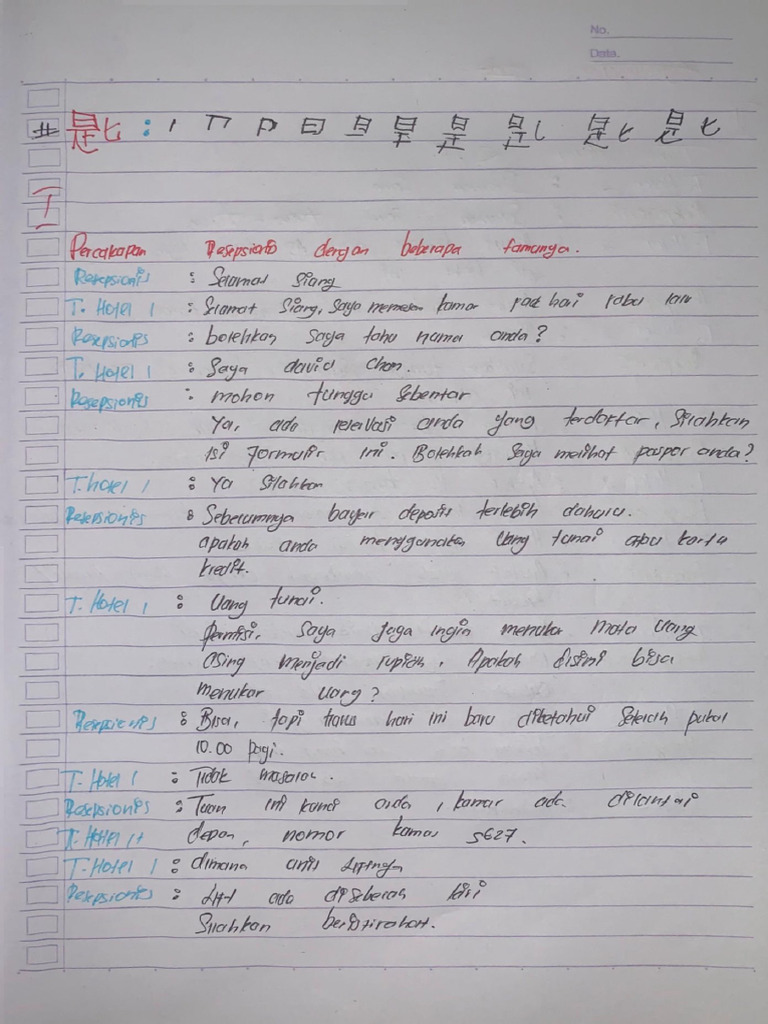 No.
Date.
# 是t : 
I
Percakapan Resepsionis dengan beberapa tamunya.
Resepsionis : Selamat siang
T. Hotel 1 : Slamat siang, saya memesan kamar pada hari rabu lalu
Resepsiones : bolehkan saya tahu nama anda?
T. Hotel 1 : Saya david Chan.
Resepsiones : mohon tunggu sebentar
Ya, ada reservasi anda yang terdaftar, Silahkan
isi formulir ini. Bolehkah saya melihat paspor anda?
T. hotel 1 : Ya silahkan
Resepsiones : Sebelumnya bayar deposit terlebih dahulu.
apakah anda menggunakan uang tunai atau kartu
kredit.
T. Hotel 1 : Uang tunai.
Permisi, saya juga ingin menukar mata uang
asing menjadi rupiah, Apakah disini bisa
menukar uang?
Resepsiones : Bisa, tapi hari ini baru diketahui setelah pukul
10.00 pagi.
T. Hotel 1 : Tidak masalah.
Resepsiones : Tuan ini kunci anda, kamar ada dilantai
T. Hotel 1 depan, nomor kamar 5627.
T. Hotel 1 : dimana
Resepsiones : Lift ada disebelah kiri
Silahkan beristirahat.